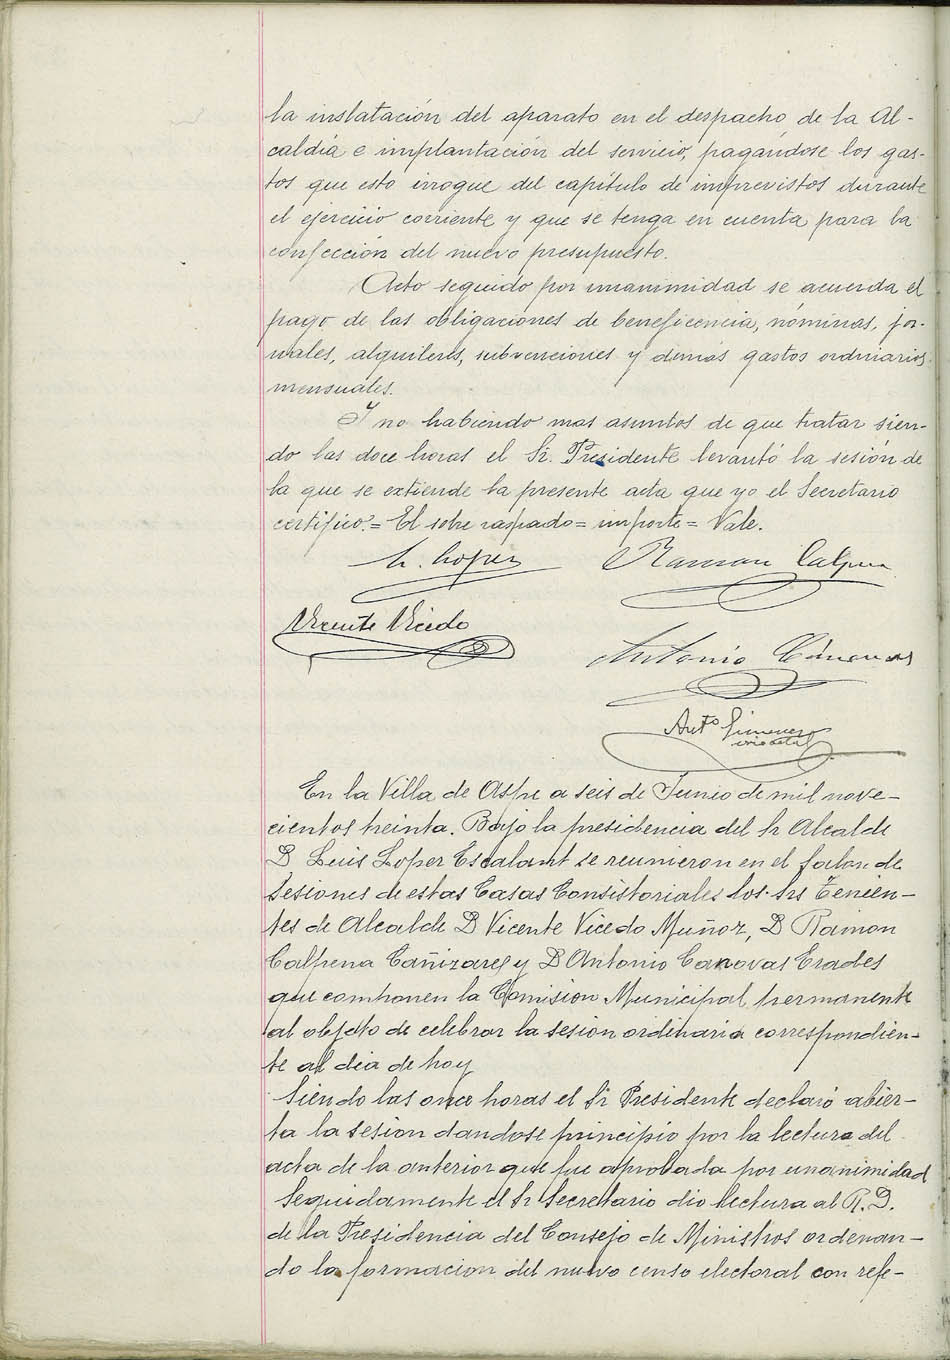 la inslatación del aparato en el despacho de la Al-
caldia e implantación del servicio, pagandose los gas-
tos que esto irrogue del capítulo de imprevistos durante
el ejercicio corriente y que se tenga en cuenta para la
confección del nuevo presupuesto.
Acto seguido por unanimidad se acuerda el
pago de las obligaciones de beneficencia, nóminas, jor-
nales, alquileres, subvenciones y demás gastos ordinarios
mensuales.
Y no habiendo mas asuntos de que tratar sien-
do las doce horas el Sr. Presidente levantó la sesión de
la que se extiende la presente acta que yo el Secretario
certifico. = El sobre raspado = importe = Vale.
L. Lopez Ramon Calpena
Vicente Vicedo
Antonio Cánovas
Antº Gimenez
En la Villa de Aspe a seis de Junio de mil nove-
cientos treinta. Bajo la presidencia del Sr Alcalde
D Luis Lopez Escalant se reunieron en el salon de
Sesiones de estas Casas Consistoriales los Srs Tenien-
tes de Alcalde D Vicente Vicedo Muñoz, D Ramon
Calpena Cañizares y D Antonio Canovas Erades
que componen la Comision Municipal permanente
al objeto de celebrar la sesion ordinaria correspondien-
te al dia de hoy
Siendo las once horas el Sr Presidente declaró abier-
ta la sesion dandose principio por la lectura del
acta de la anterior que fue aprobada por unanimidad
Seguidamente el Sr Secretario dio lectura al R. D.
de la Presidencia del Consejo de Ministros ordenan-
do la formacion del nuevo censo electoral con refe-